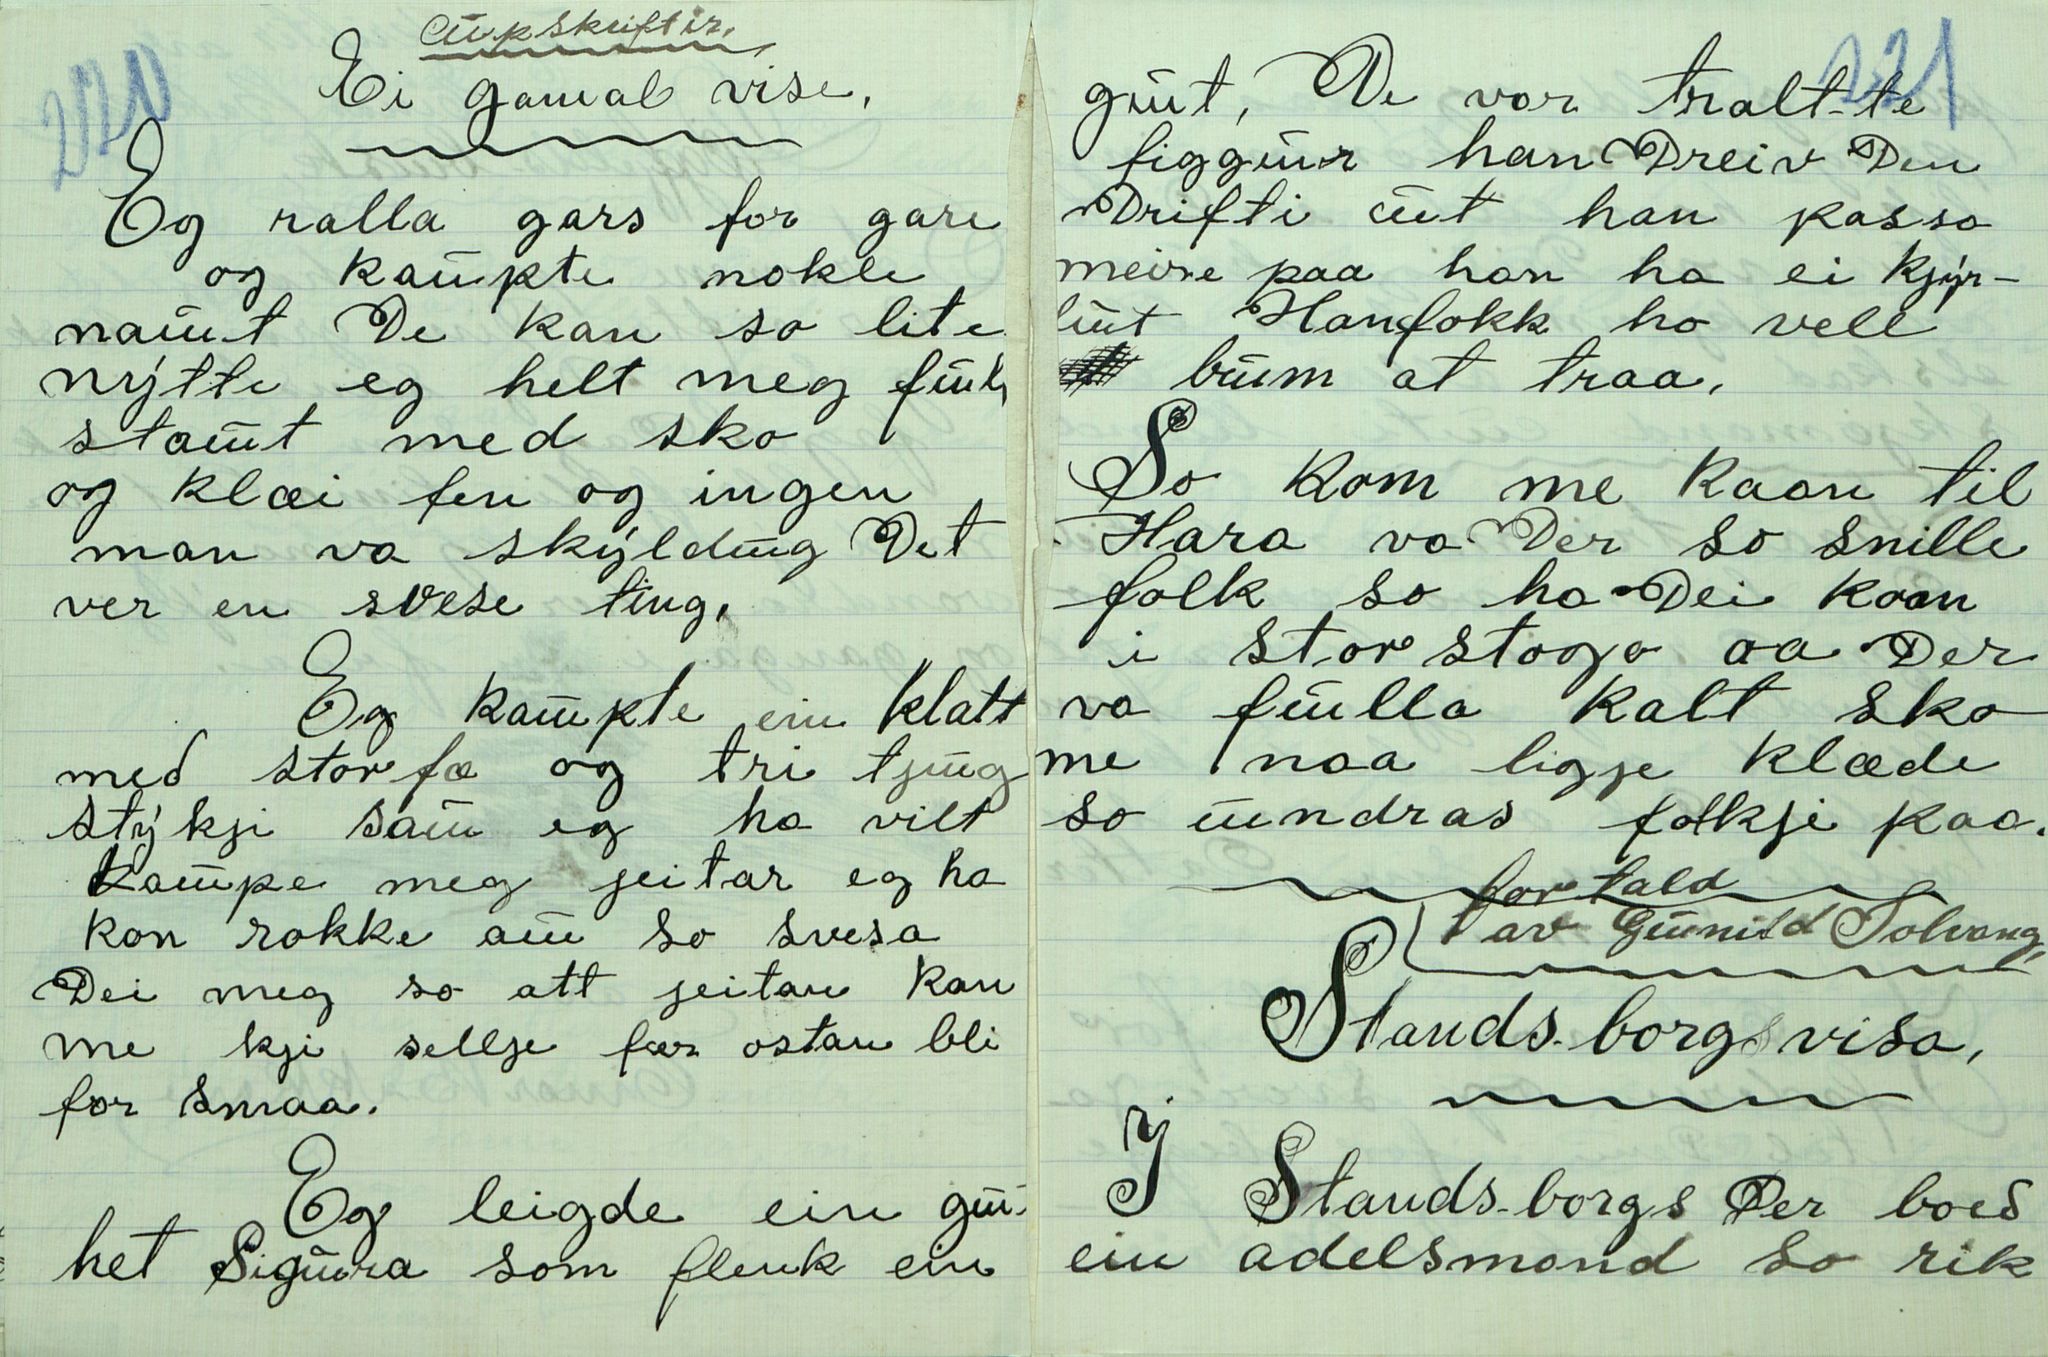 220
Uupskriftir.
Ei gamal vise.
Eg ralla gars for gare
og kaupte nokle
naut De kan so lite
nytte eg helt meg
staut med sko
og klæi fen og ingen
man va skyldug Det
ver en svese ting.
Eg kaupte ein klatt
med storfæ og tri tjug
stykji sau eg ha vilt
kaupe meg jeitar eg ha
kon rokke au so svesa
Dei meg so att jeitan kan
me kji sellje fær ostan bli
for smaa.
Eg leigde ein gu-
het Sigura som flenk ein
221
gut, De var tralt-te
figgur han Dreiv Den
Drifti ut han passa
meire paa han ha ei kjyr-
lut Hanfokk ho vell
bum at traa.
So kom me kaan til
Hara va Der so snille
folk so ha Dei kaan
i storstogo aa Der
va fulla kalt ska
me naa ligje klæde
so undras folkji paa.
fortald
av Gunild Solvang,
Stands-borgsvisa,
I Stands-borgs Der boed
ein adelsmand so rik